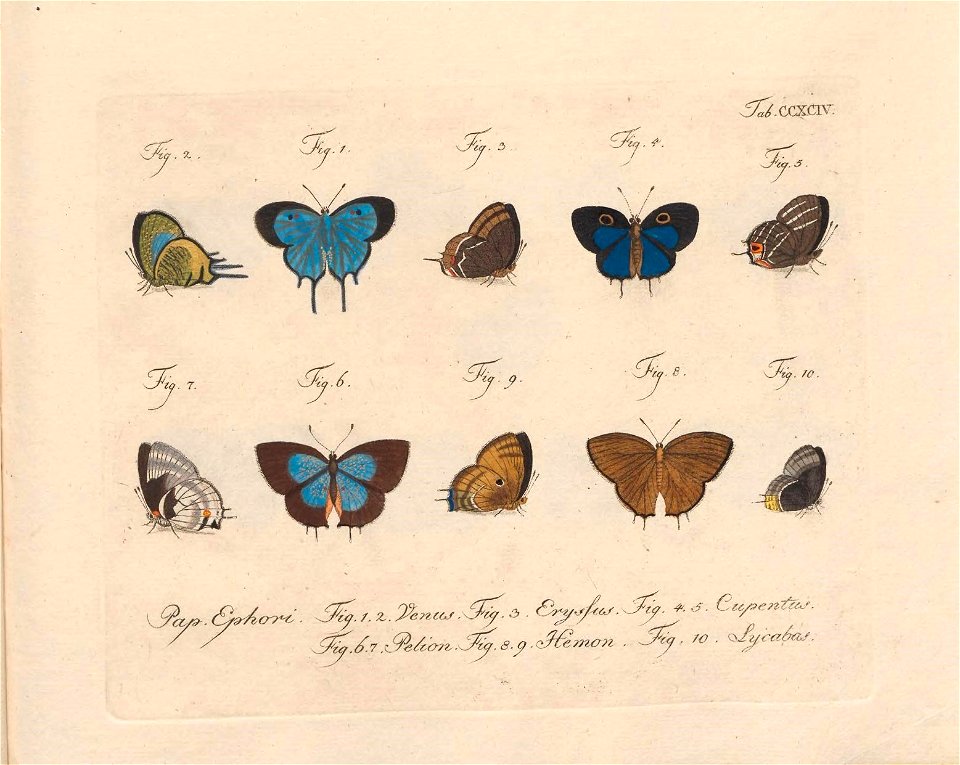 Tab. CCXCIV.
Fig. 2. Fig. 1. Fig. 3. Fig. 4. Fig. 5.
Fig. 7. Fig. 6. Fig. 9. Fig. 8. Fig. 10.
Pap. Ephori. Fig. 1. 2. Venus. Fig. 3. Eryſsus. Fig. 4. 5. Cupentus.
Fig. 6. 7. Pelion. Fig. 8. 9. Hemon. Fig. 10. Lycabas.